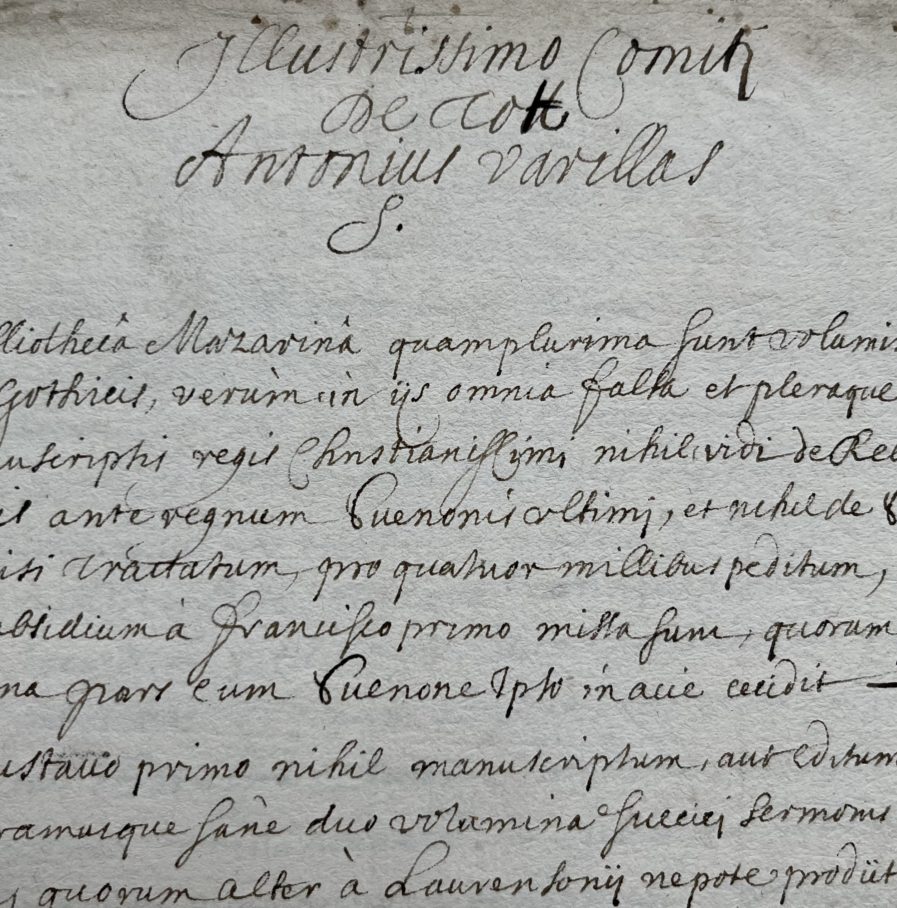 Illustrissimo Comiti
De Tott
Antonius Varillas
S.
lliothecâ Mazarinâ quamplurima sunt volumi
Gothicis, verùm in ijs omnia falsa et pleraque
uscriptis regis Christianissimi nihil vidi de Re
is ante regnum Suenonis ultimi, et nihil de S
isi Tractatum, pro quatuor millibus peditum,
ubsidium à Francisco primo missa sunt, quorum
na pars cum Suenone Ipso in acie cecidit
ustavo primo nihil manuscriptum, aut editum
ramusque sanè duo volumina suecici sermonis
quorum alter à Laurensonij nepote prodiit